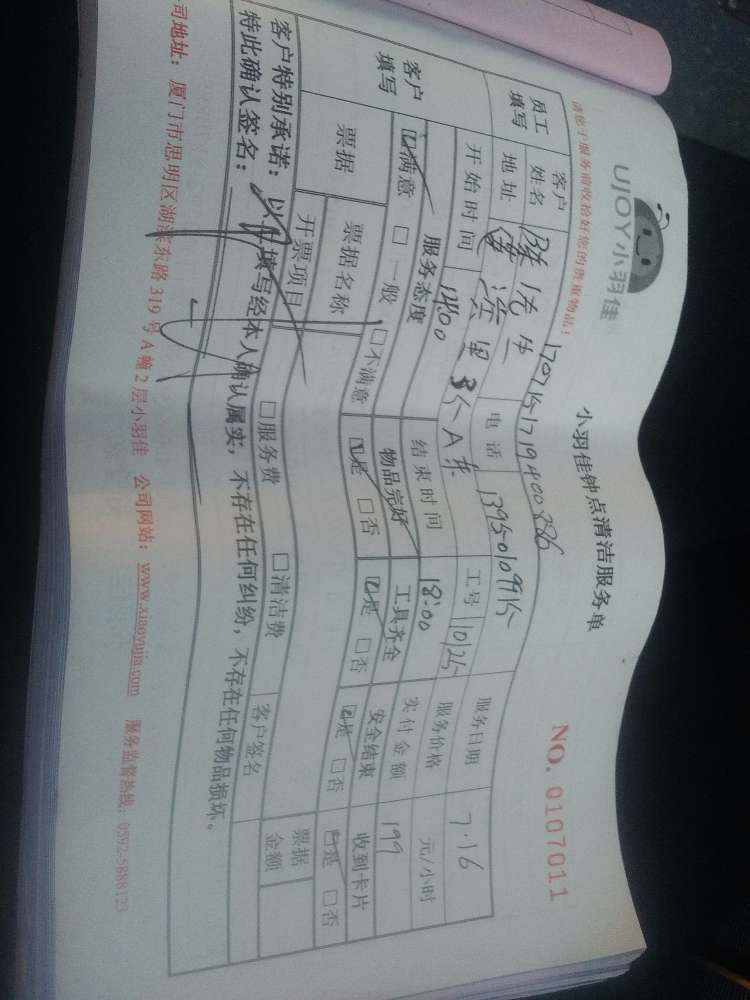 UJOY小羽佳
小羽佳钟点清洁服务单
NO. 0107011
请您于服务前收拾好您的贵重物品！
员工填写
客户姓名 陈先生 电话 13950109915 工号 1025 服务日期 7.16
地址 3个A东 服务价格 元/小时
开始时间 14:00 结束时间 18:00 实付金额 199
客户填写
服务态度 物品完好 工具齐全 安全结束 收到卡片
☑满意 □一般 □不满意 ☑是 □否 ☑是 □否 ☑是 □否 □是 □否
票据 票据名称 开票项目 □服务费 □清洁费 票据金额
客户签名
客户特别承诺：以上填写经本人确认属实，不存在任何纠纷，不存在任何物品损坏。
特此确认签名：
司地址：厦门市思明区湖滨东路319号A幢2层小羽佳 公司网站：www.xiaoyujia.com 服务监督热线：0592-5888123